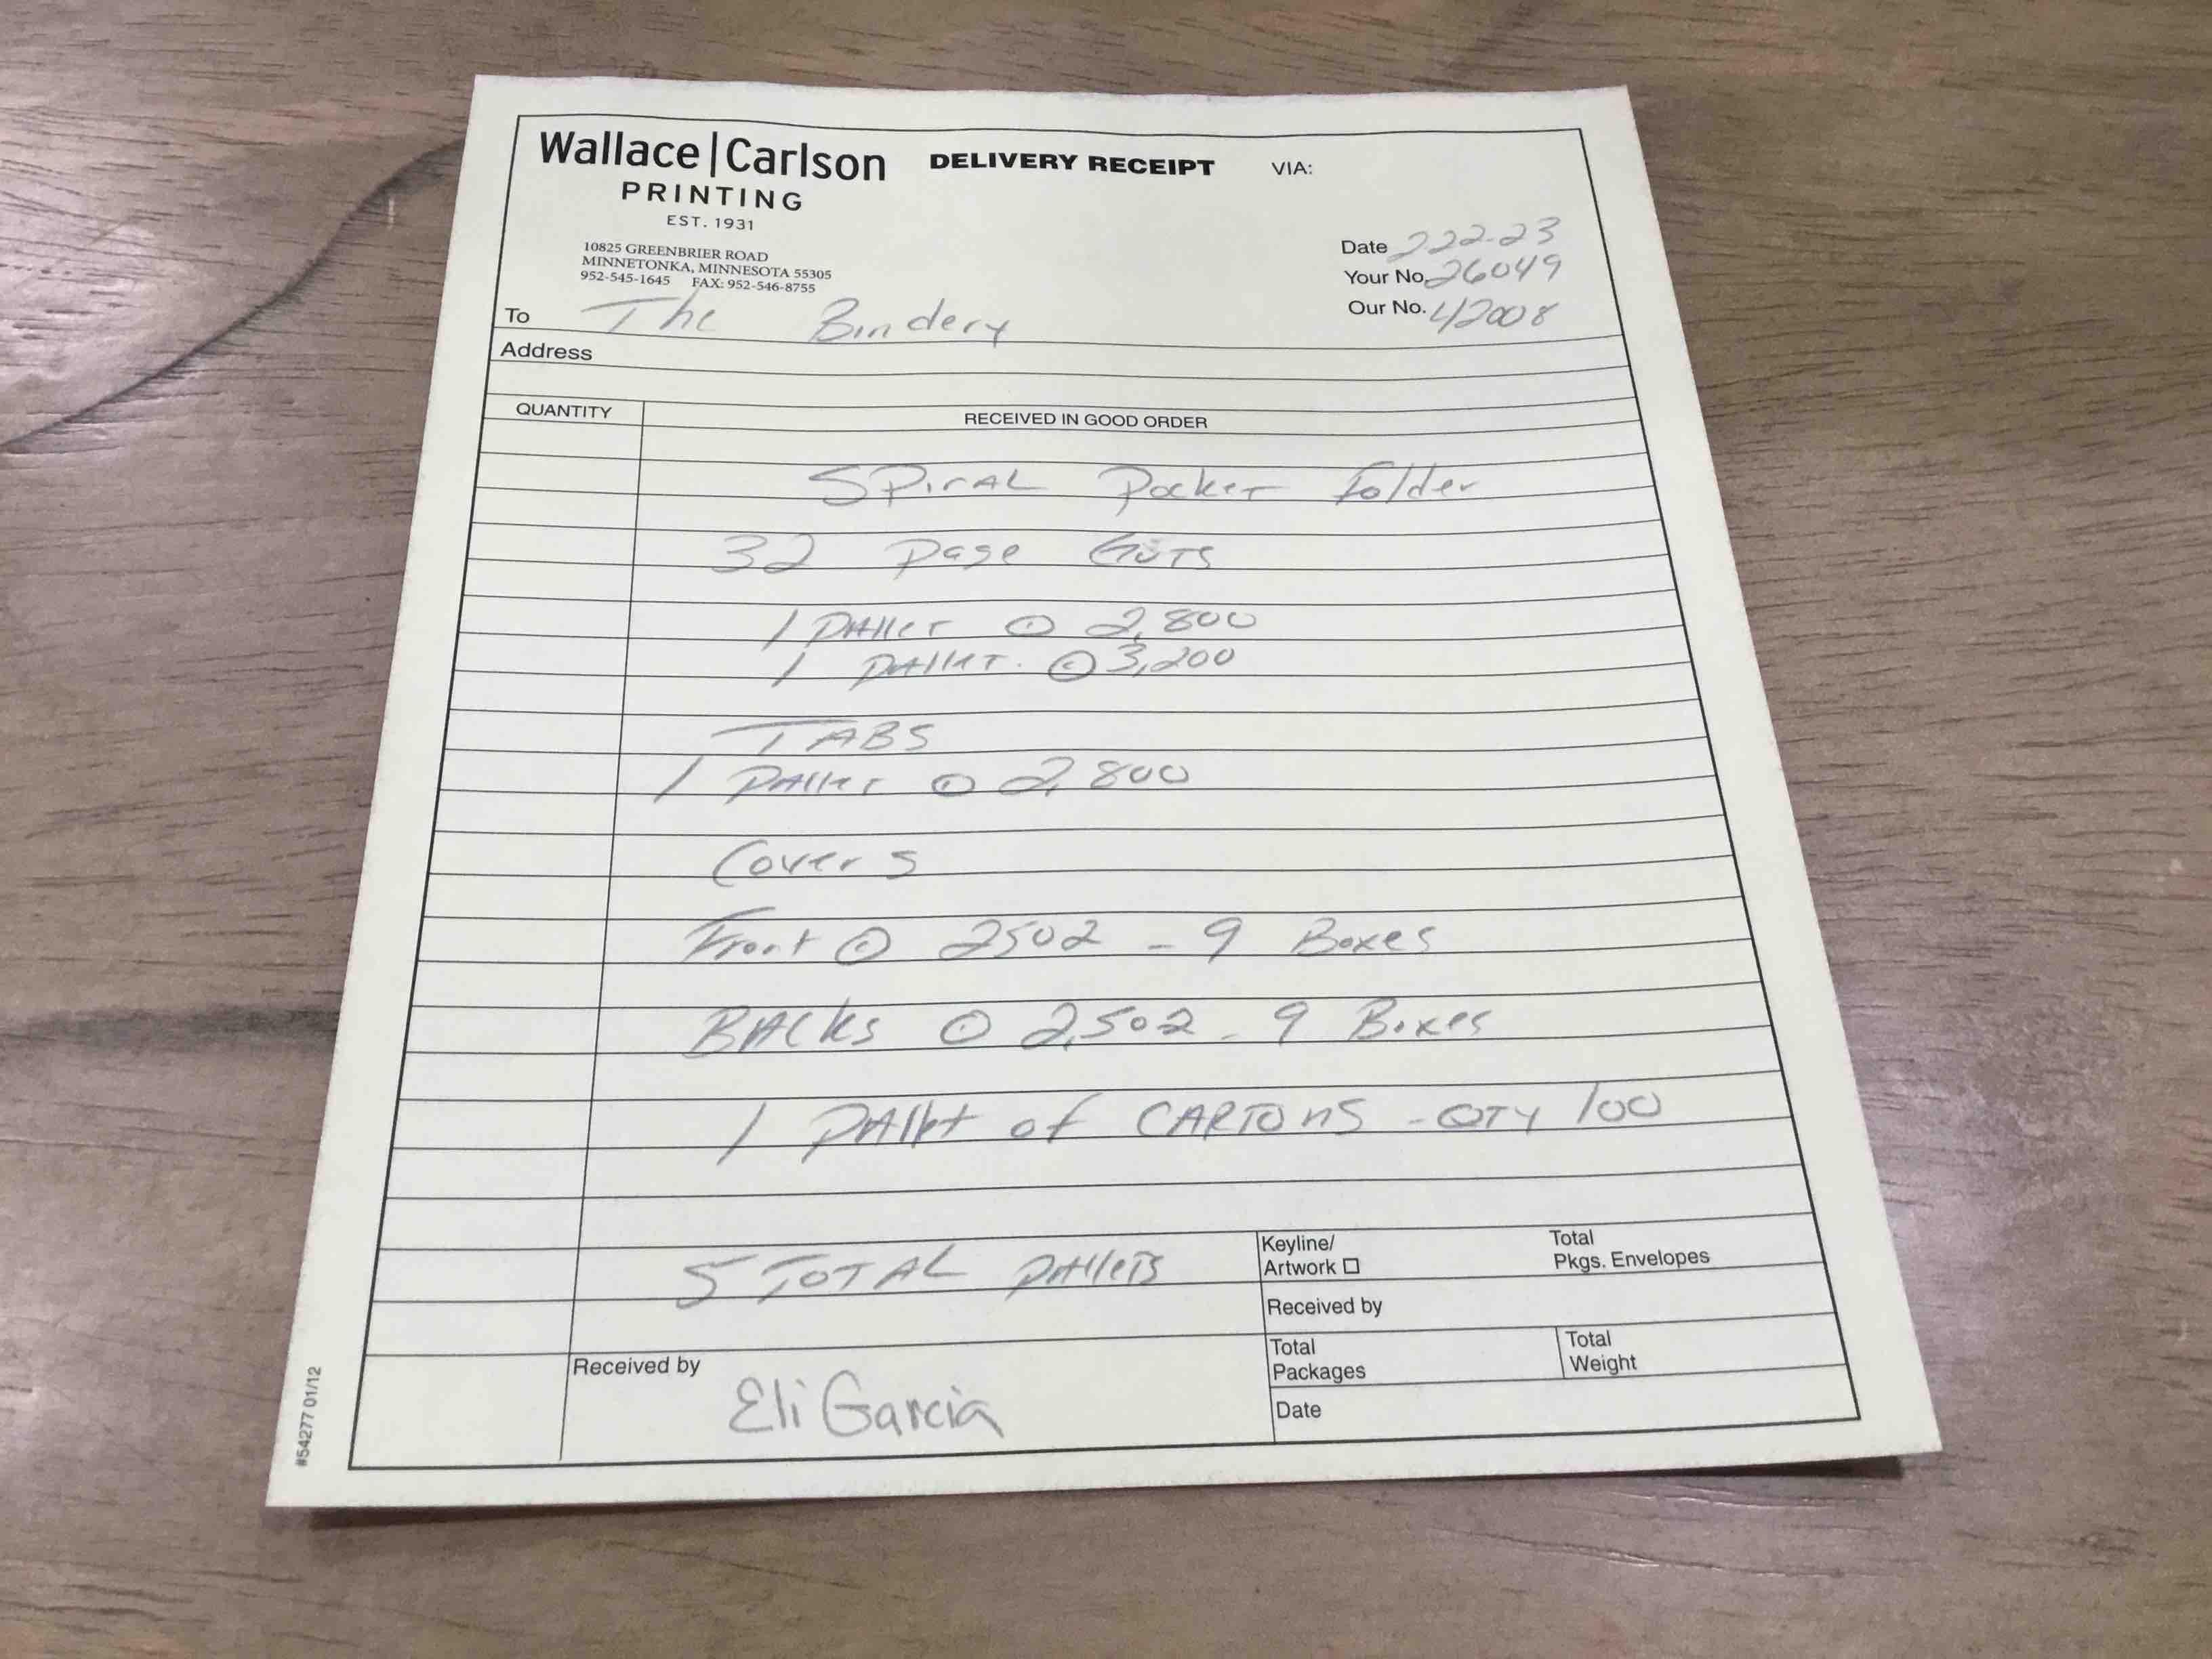 Wallace|Carlson
PRINTING
EST. 1931
10825 GREENBRIER ROAD
MINNETONKA, MINNESOTA 55305
952-545-1645 FAX: 952-546-8755
DELIVERY RECEIPT
VIA:
Date 2-22-23
Your No. 26049
Our No. 42008
To The Bindery
Address
QUANTITY RECEIVED IN GOOD ORDER
SPirAL Pocket Folder
32 Page GUTS
1 PAllet @ 2,800
1 PAllet. @ 3,200
TABS
1 PAllet @ 2,800
Covers
Front @ 2502 - 9 Boxes
BACks @ 2,502 - 9 Boxes
1 PAllet of CARTOnS - QTY 100
5 TOTAL PAllets
Keyline/
Artwork ☐
Total
Pkgs. Envelopes
Received by
Total
Packages
Total
Weight
Date
Received by Eli Garcia
#54277 01/12